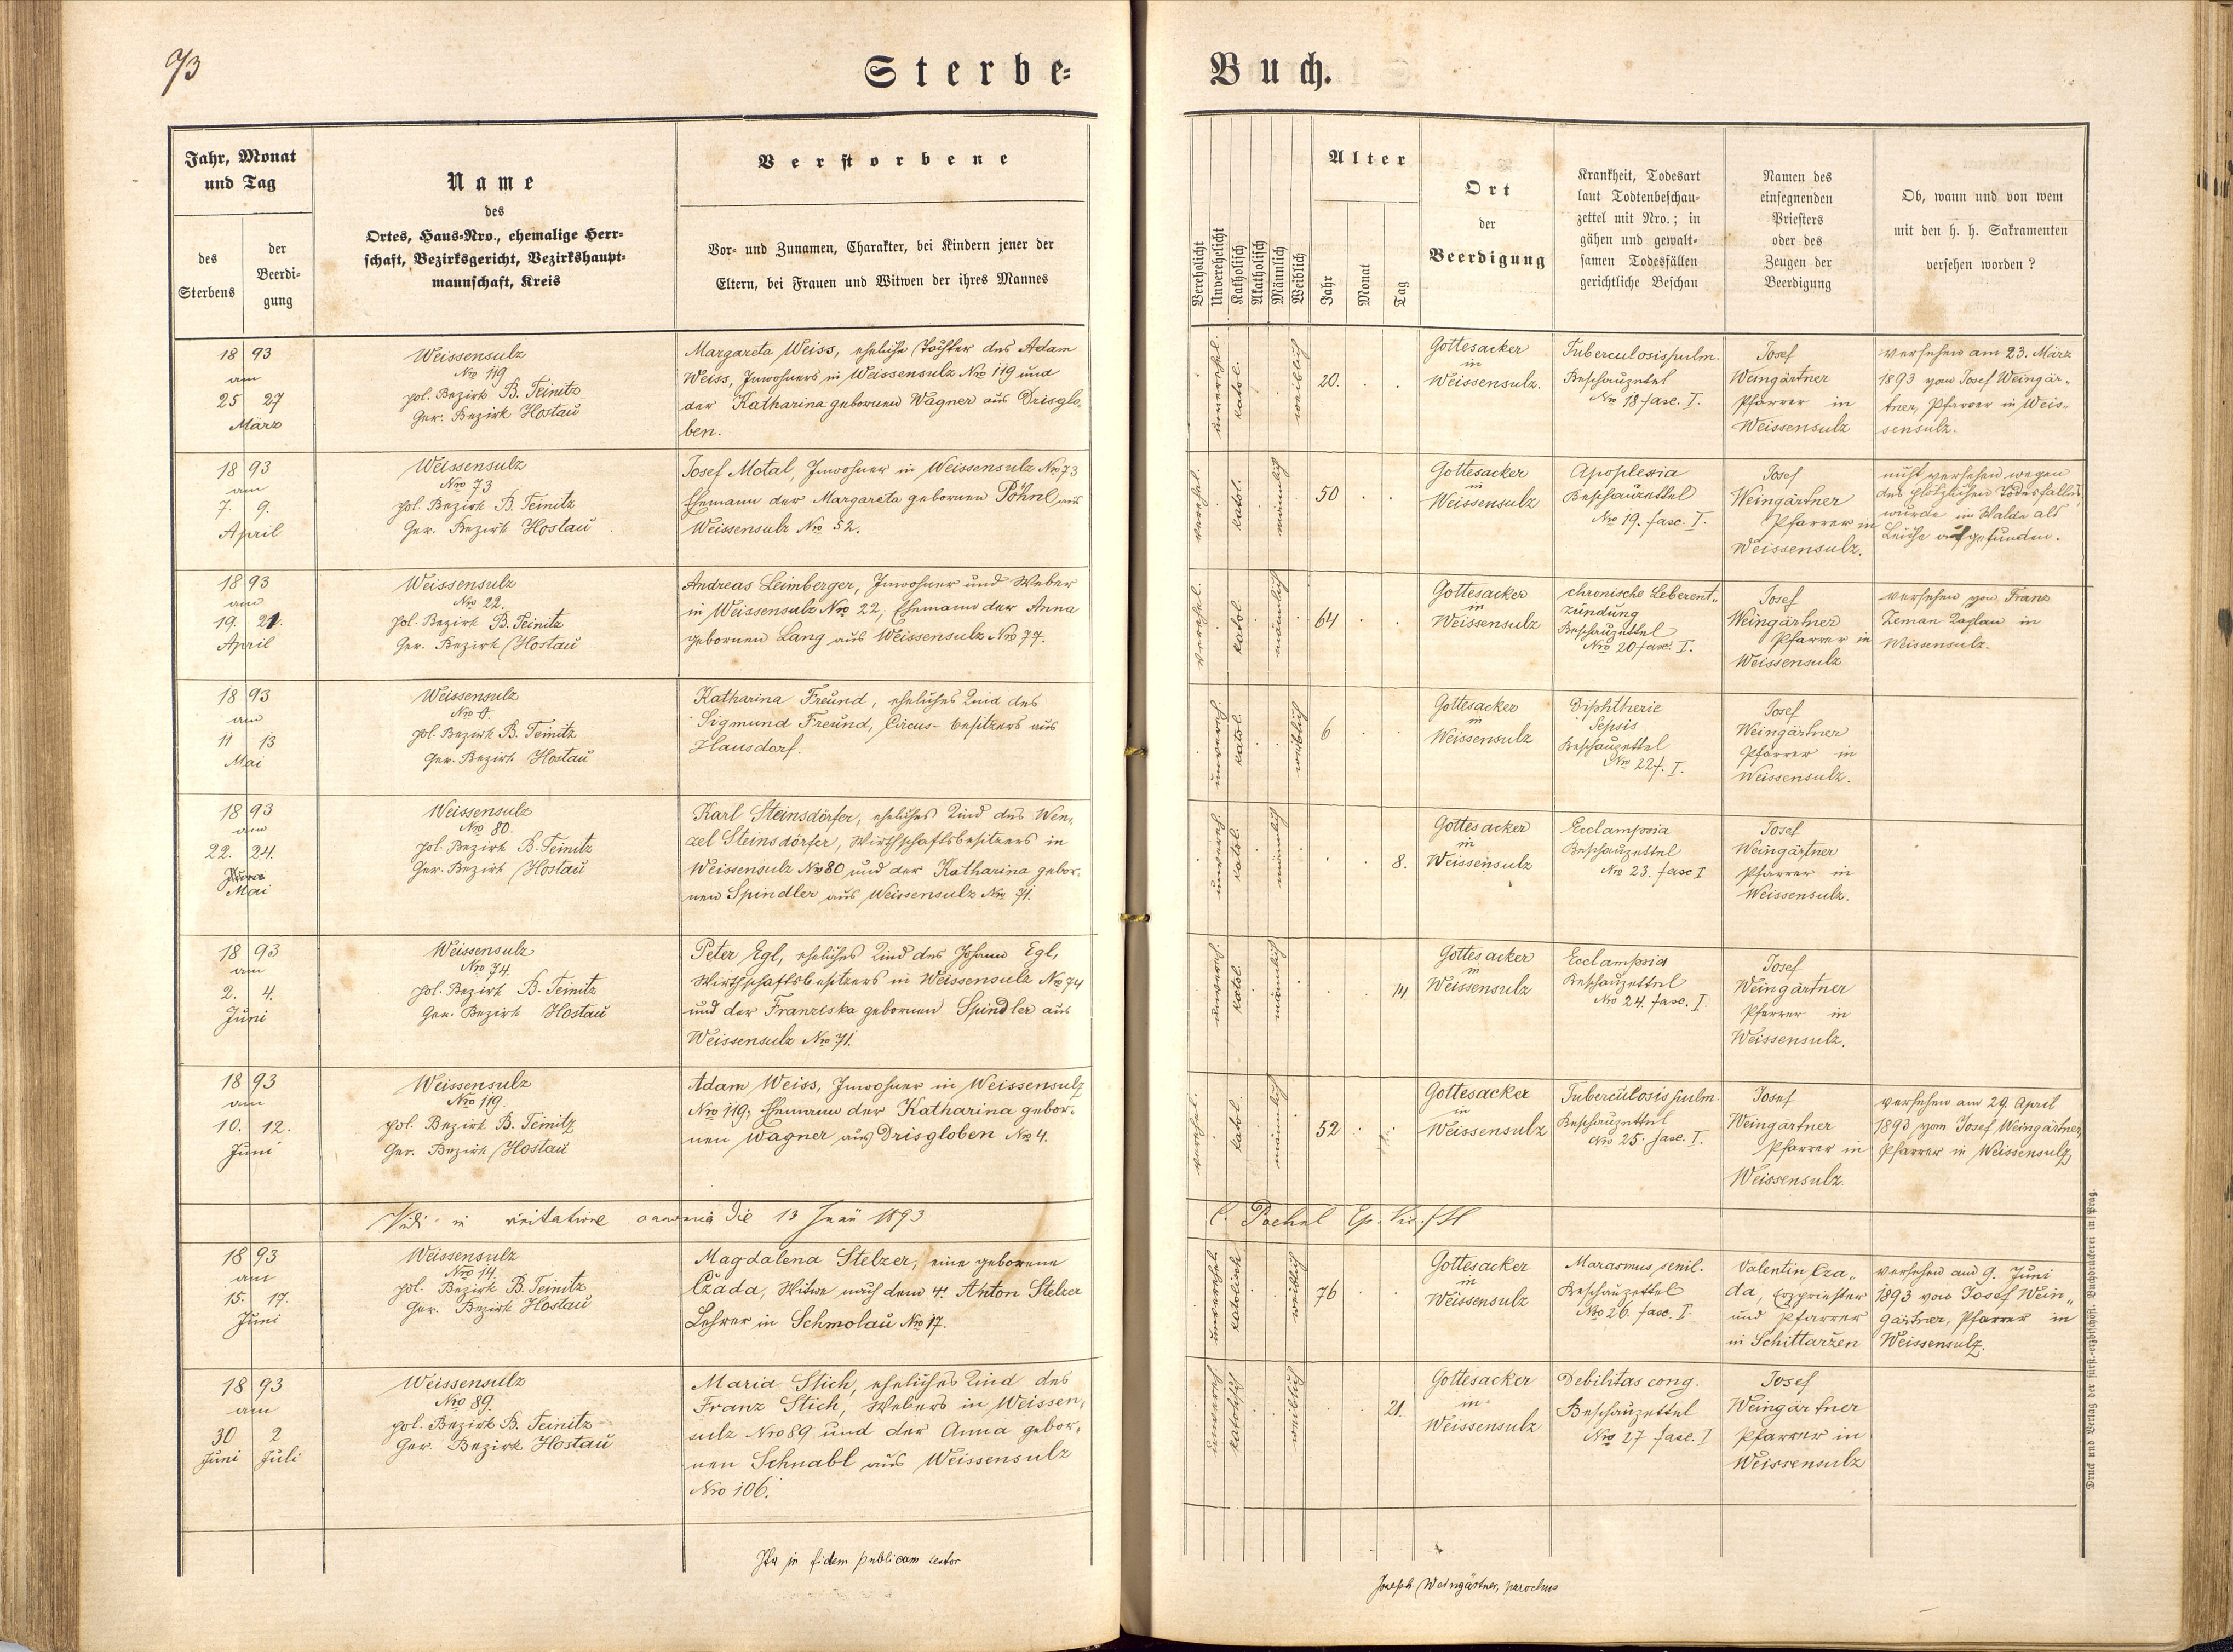 93
Sterbe-
Buch.
Jahr, Monat
und Tag
des
Sterbens
der
Beerdi-
gung
Name
des
Ortes, Haus-Nro., ehemalige Herr-
schaft, Bezirksgericht, Bezirkshaupt-
mannschaft, Kreis
Verstorbene
Vor- und Zunamen, Charakter, bei Kindern jener der
Eltern, bei Frauen und Witwen der ihres Mannes
Verehelicht
Unverehelicht
Katholisch
Akatholisch
Männlich
Weiblich
Alter
Jahr
Monat
Tag
Ort
der
Beerdigung
Krankheit, Todesart
laut Todtenbeschau-
zettel mit Nro.; in
gähen und gewalt-
samen Todesfällen
gerichtliche Beschau
Namen des
einsegnenden
Priesters
oder des
Zeugen der
Beerdigung
Ob, wann und von wem
mit den h. h. Sakramenten
versehen worden?
18 93
am
25 27
März
Weissensulz
Nro 119
pol. Bezirk B. Teinitz
Ger. Bezirk Hostau
Margareta Weiss, eheliche Tochter des Adam
Weiss, Inwohners in Weissensulz Nro 119 und
der Katharina gebornen Wagner aus Drisglo-
ben.
unverehel.
katol.
weiblich
20.
Gottesacker
in
Weissensulz.
Tuberculosis pulm.
Beschauzettel
Nro 18 fasc. I.
Josef
Weingärtner
Pfarrer in
Weissensulz
versehen am 23. März
1893 von Josef Weingär-
tner, Pfarrer in Weis-
sensulz.
18 93
am
7. 9.
April
Weissensulz
Nro 73
pol. Bezirk B. Teinitz
Ger. Bezirk Hostau
Josef Motal, Inwohner in Weissensulz Nro 73
Ehemann der Margareta gebornen Pöhnl aus
Weissensulz Nro 52.
verehel.
katol.
männlich
50
Gottesacker
in
Weissensulz
Apoplexia
Beschauzettel
Nro 19. fasc. I.
Josef
Weingärtner
Pfarrer in
Weissensulz.
nicht versehen wegen
des plötzlichen Todesfalles,
wurde im Walde als
Leiche aufgefunden.
18 93
am
19. 21.
April
Weissensulz
Nro 22.
pol. Bezirk B. Teinitz
Ger. Bezirk Hostau
Andreas Leimberger, Inwohner und Weber
in Weissensulz Nro 22; Ehemann der Anna
gebornen Lang aus Weissensulz Nro 77.
verehel.
katol
männlich
64
Gottesacker
in
Weissensulz
chronische Leberent-
zündung
Beschauzettel
Nro 20 fasc. I.
Josef
Weingärtner
Pfarrer in
Weissensulz
versehen von Franz
Zeman Kaplan in
Weissensulz.
18 93
am
11 13
Mai
Weissensulz
pol. Bezirk B. Teinitz
Ger. Bezirk Hostau
Katharina Freund, eheliches Kind des
Sigmund Freund, Circus-besitzers aus
Hausdorf.
unvereh.
katol.
weiblich
6
Gottesacker
in
Weissensulz
Diphtherie
Sepsis
Beschauzettel
Nro 22 f. I.
Josef
Weingärtner
Pfarrer in
Weissensulz.
18 93
am
22. 24.
Mai
Weissensulz
Nro 80.
pol. Bezirk B. Teinitz
Ger. Bezirk Hostau
Karl Steinsdörfer, eheliches Kind des Wen-
zel Steinsdörfer, Wirthschaftsbesitzers in
Weissensulz Nro 80 und der Katharina gebor-
nen Spindler aus Weissensulz Nro 71.
unvereh.
katol.
männlich
8.
Gottesacker
in
Weissensulz
Ecclampsia
Beschauzettel
Nro 23. fasc I
Josef
Weingärtner
Pfarrer in
Weissensulz.
18 93
am
2. 4.
Juni
Weissensulz
Nro 74.
pol. Bezirk B. Teinitz
Ger. Bezirk Hostau
Peter Egl, eheliches Kind des Johann Egl,
Wirthschaftsbesitzers in Weissensulz Nro 74
und der Franziska gebornen Spindler aus
Weissensulz Nro 71.
unvereh.
katol
männlich
14
Gottesacker
in
Weissensulz
Ecclampsia
Beschauzettel
Nro 24. fasc. I.
Josef
Weingärtner
Pfarrer in
Weissensulz.
18 93
am
10. 12.
Juni
Weissensulz
Nro 119.
pol. Bezirk B. Teinitz
Ger. Bezirk Hostau
Adam Weiss, Inwohner in Weissensulz
Nro 119; Ehemann der Katharina gebor-
nen Wagner aus Drisgloben Nro 4.
verehel.
katol.
männlich
52
Gottesacker
in
Weissensulz
Tuberculosis pulm.
Beschauzettel
Nro 25. fasc. I.
Josef
Weingärtner
Pfarrer in
Weissensulz
versehen am 29. April
1893 vom Josef Weingärtner,
Pfarrer in Weissensulz,
Vidi in visitatione canonica die 13 Juni 1893
18 93
am
15. 17.
Juni
Weissensulz
Nro 14.
pol. Bezirk B. Teinitz
Ger. Bezirk Hostau
Magdalena Stelzer, eine geborene
Czada, Witwe nach dem Anton Stelzer
Lehrer in Schmolau Nro 17.
unverehel.
katolisch
weiblich
76
Gottesacker
in
Weissensulz
Marasmus senil.
Beschauzettel
Nro 26. fasc. I.
Valentin Cza-
da, Erzpriester
und Pfarrer
in Schittarzen
versehen am 9. Juni
1893 von Josef Wein-
gärtner, Pfarrer in
Weissensulz.
18 93
am
30 2
Juni Juli
Weissensulz
Nro 89.
pol. Bezirk B. Teinitz
Ger. Bezirk Hostau
Maria Stich, eheliches Kind des
Franz Stich, Webers in Weissen-
sulz Nro 89 und der Anna gebor-
nen Schnabl aus Weissensulz
Nro 106.
unvereh.
katolisch
weiblich
21.
Gottesacker
in
Weissensulz
Debilitas cong.
Beschauzettel
Nro 27 fasc. I
Josef
Weingärtner
Pfarrer in
Weissensulz
Ita in fidem publicam testor
Joseph Weingärtner, parochus
Druck und Verlag der fürst.-erzbischöfl. Buchdruckerei in Prag.